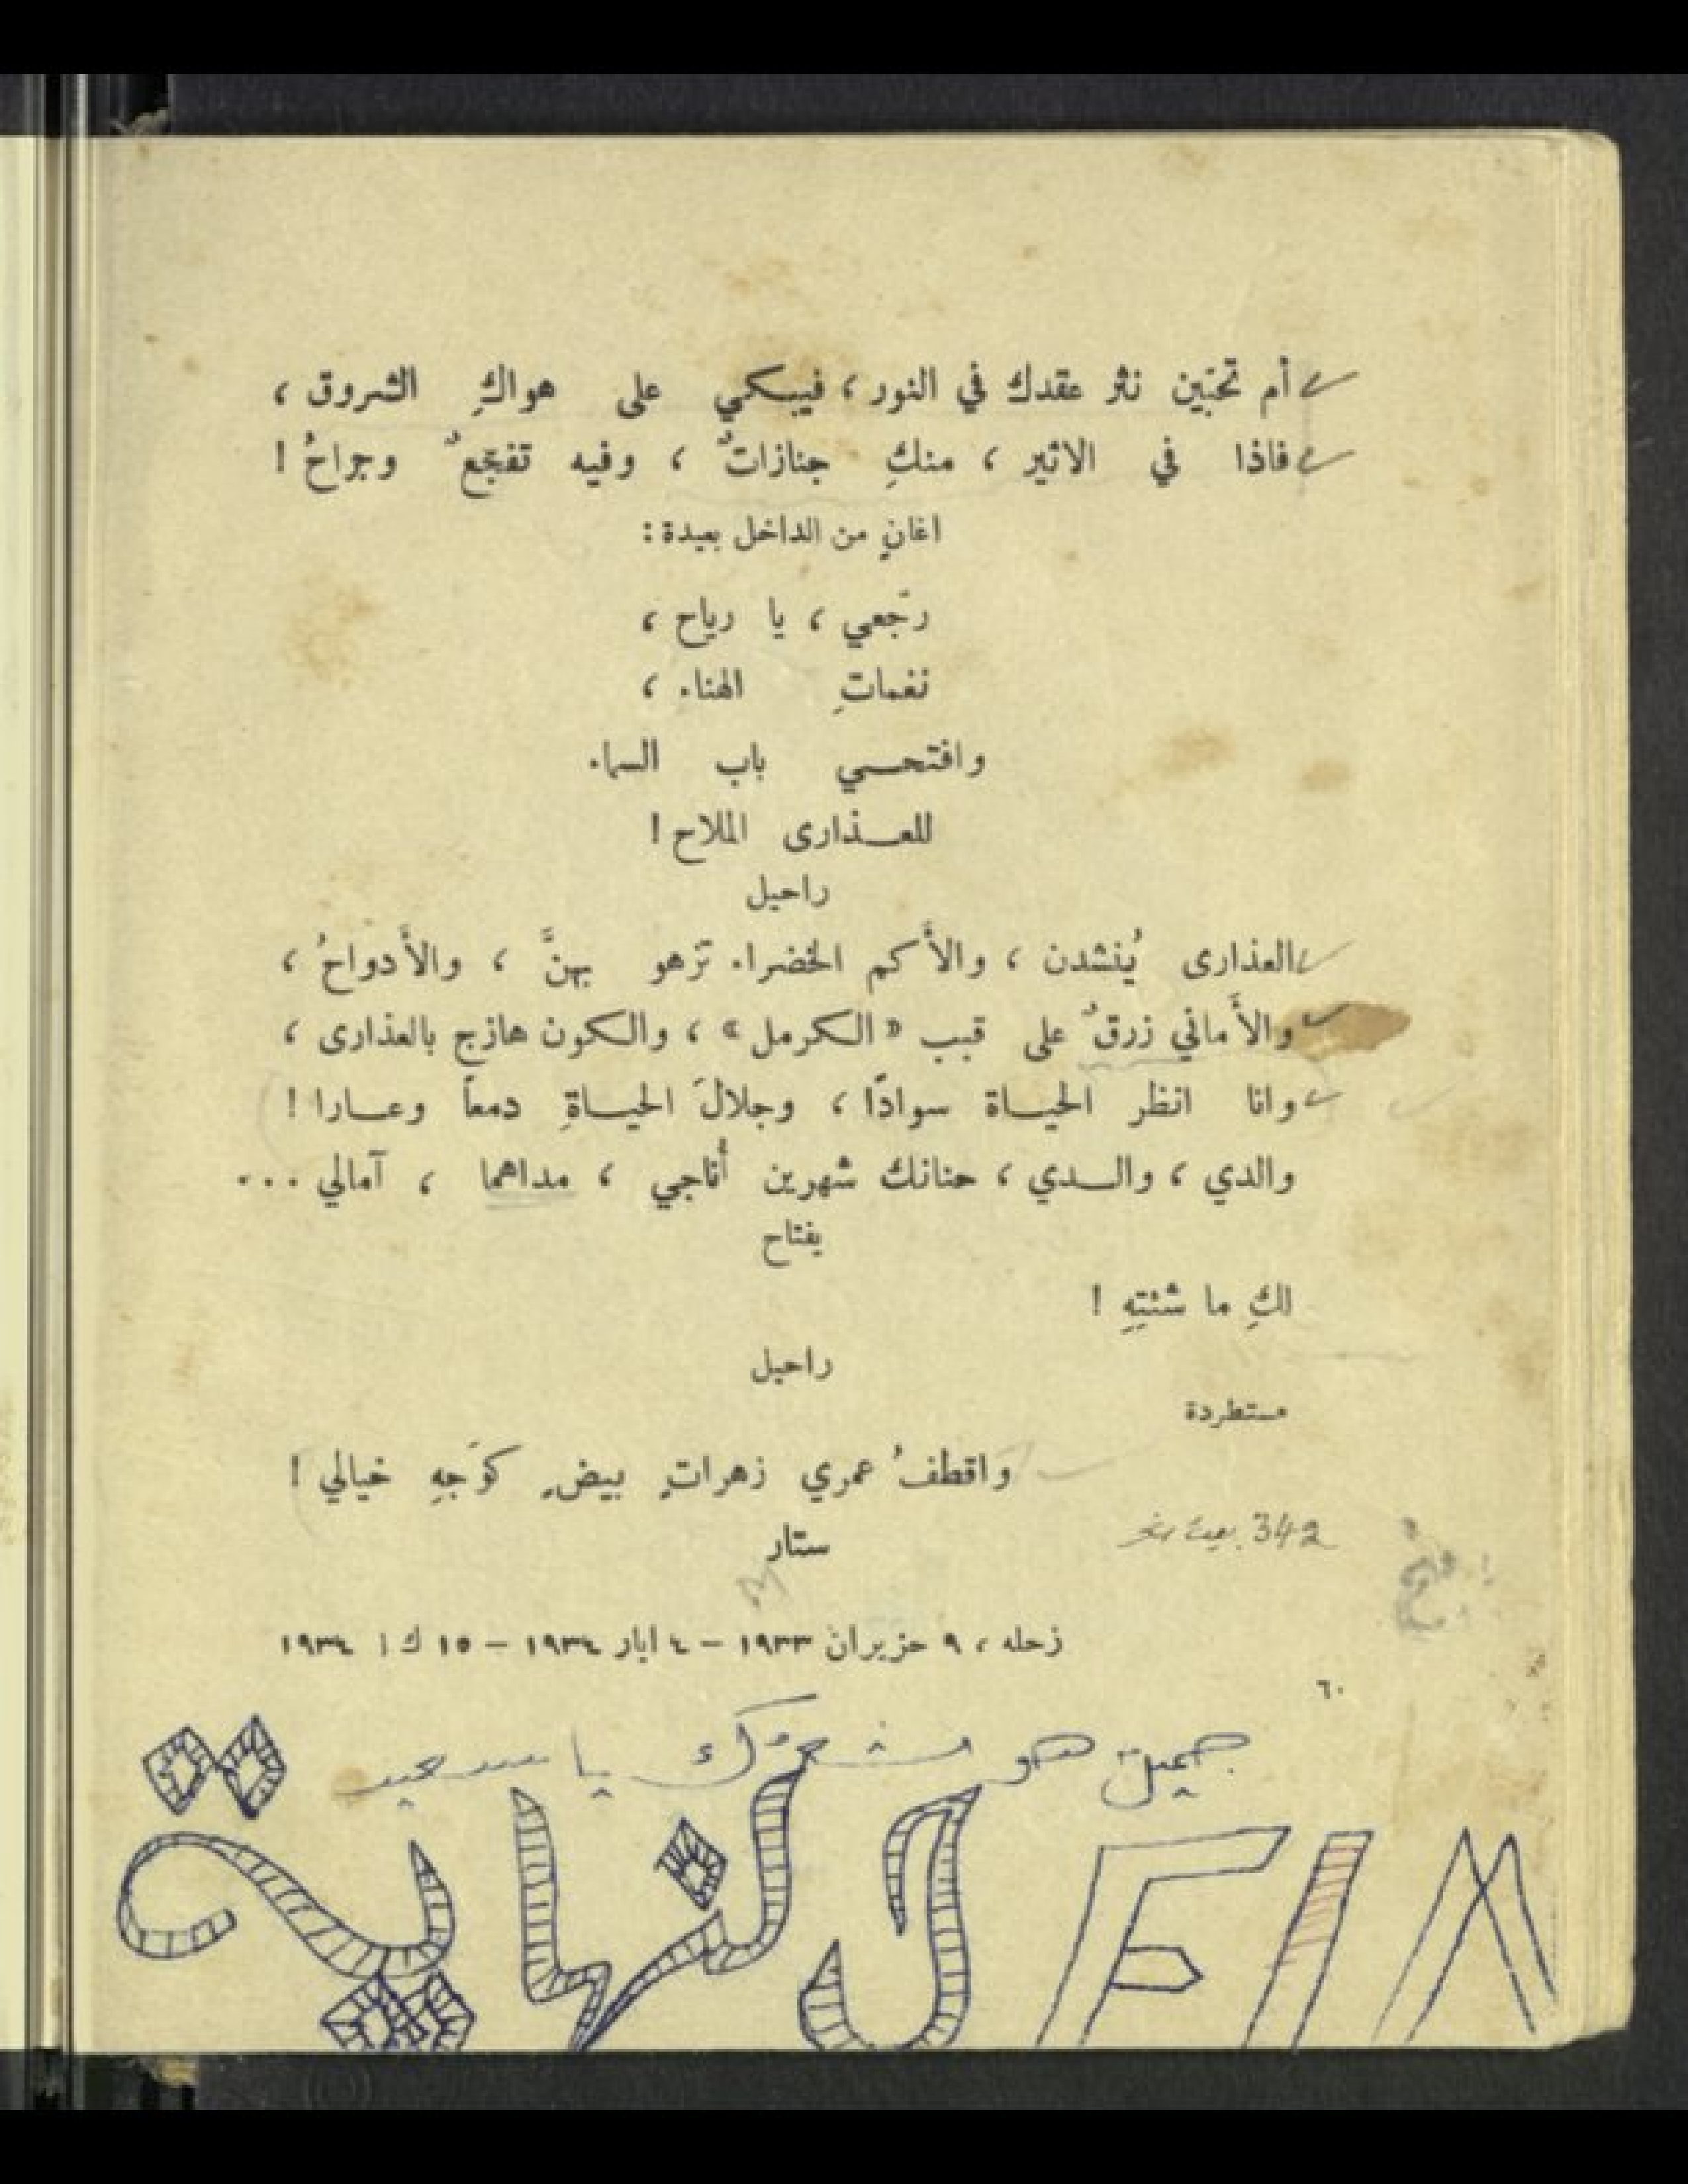 أم تحبّين نثر عقدك في النور ، فيبكي على هواكِ الشروق ،
فاذا في الاثير ، منكِ جنازاتٌ ، وفيه تفجّعٌ وجراحُ !
اغانٍ من الداخل بعيدة :
رجّعي ، يا رياح ،
نغماتِ الهناء ،
وافتحي باب السماء
للعذارى الملاح !
راحيل
العذارى يُنشدن ، والأَكم الخضراء تزهو بهنَّ ، والأَدواحُ ،
والأَماني زرقٌ على قبب « الكرمل » ، والكون هازج بالعذارى ،
وانا انظر الحياة سوادًا ، وجلالَ الحياةِ دمعاً وعارا !
والدي ، والدي ، حنانك شهرين أُناجي ، مداهما ، آمالي ...
يفتاح
لكِ ما شئتِهِ !
راحيل
مستطردة
واقطفُ عمري زهراتٍ بيضٍ كوَجهِ خيالي !
342 بيت شعر
ستار
زحله ، ٩ حزيران ١٩٣٣ – ٤ ايار ١٩٣٤ – ١٥ ك ١ ١٩٣٤
٦٠
جميل هو شعرك يا سعيد
النهاية FIN